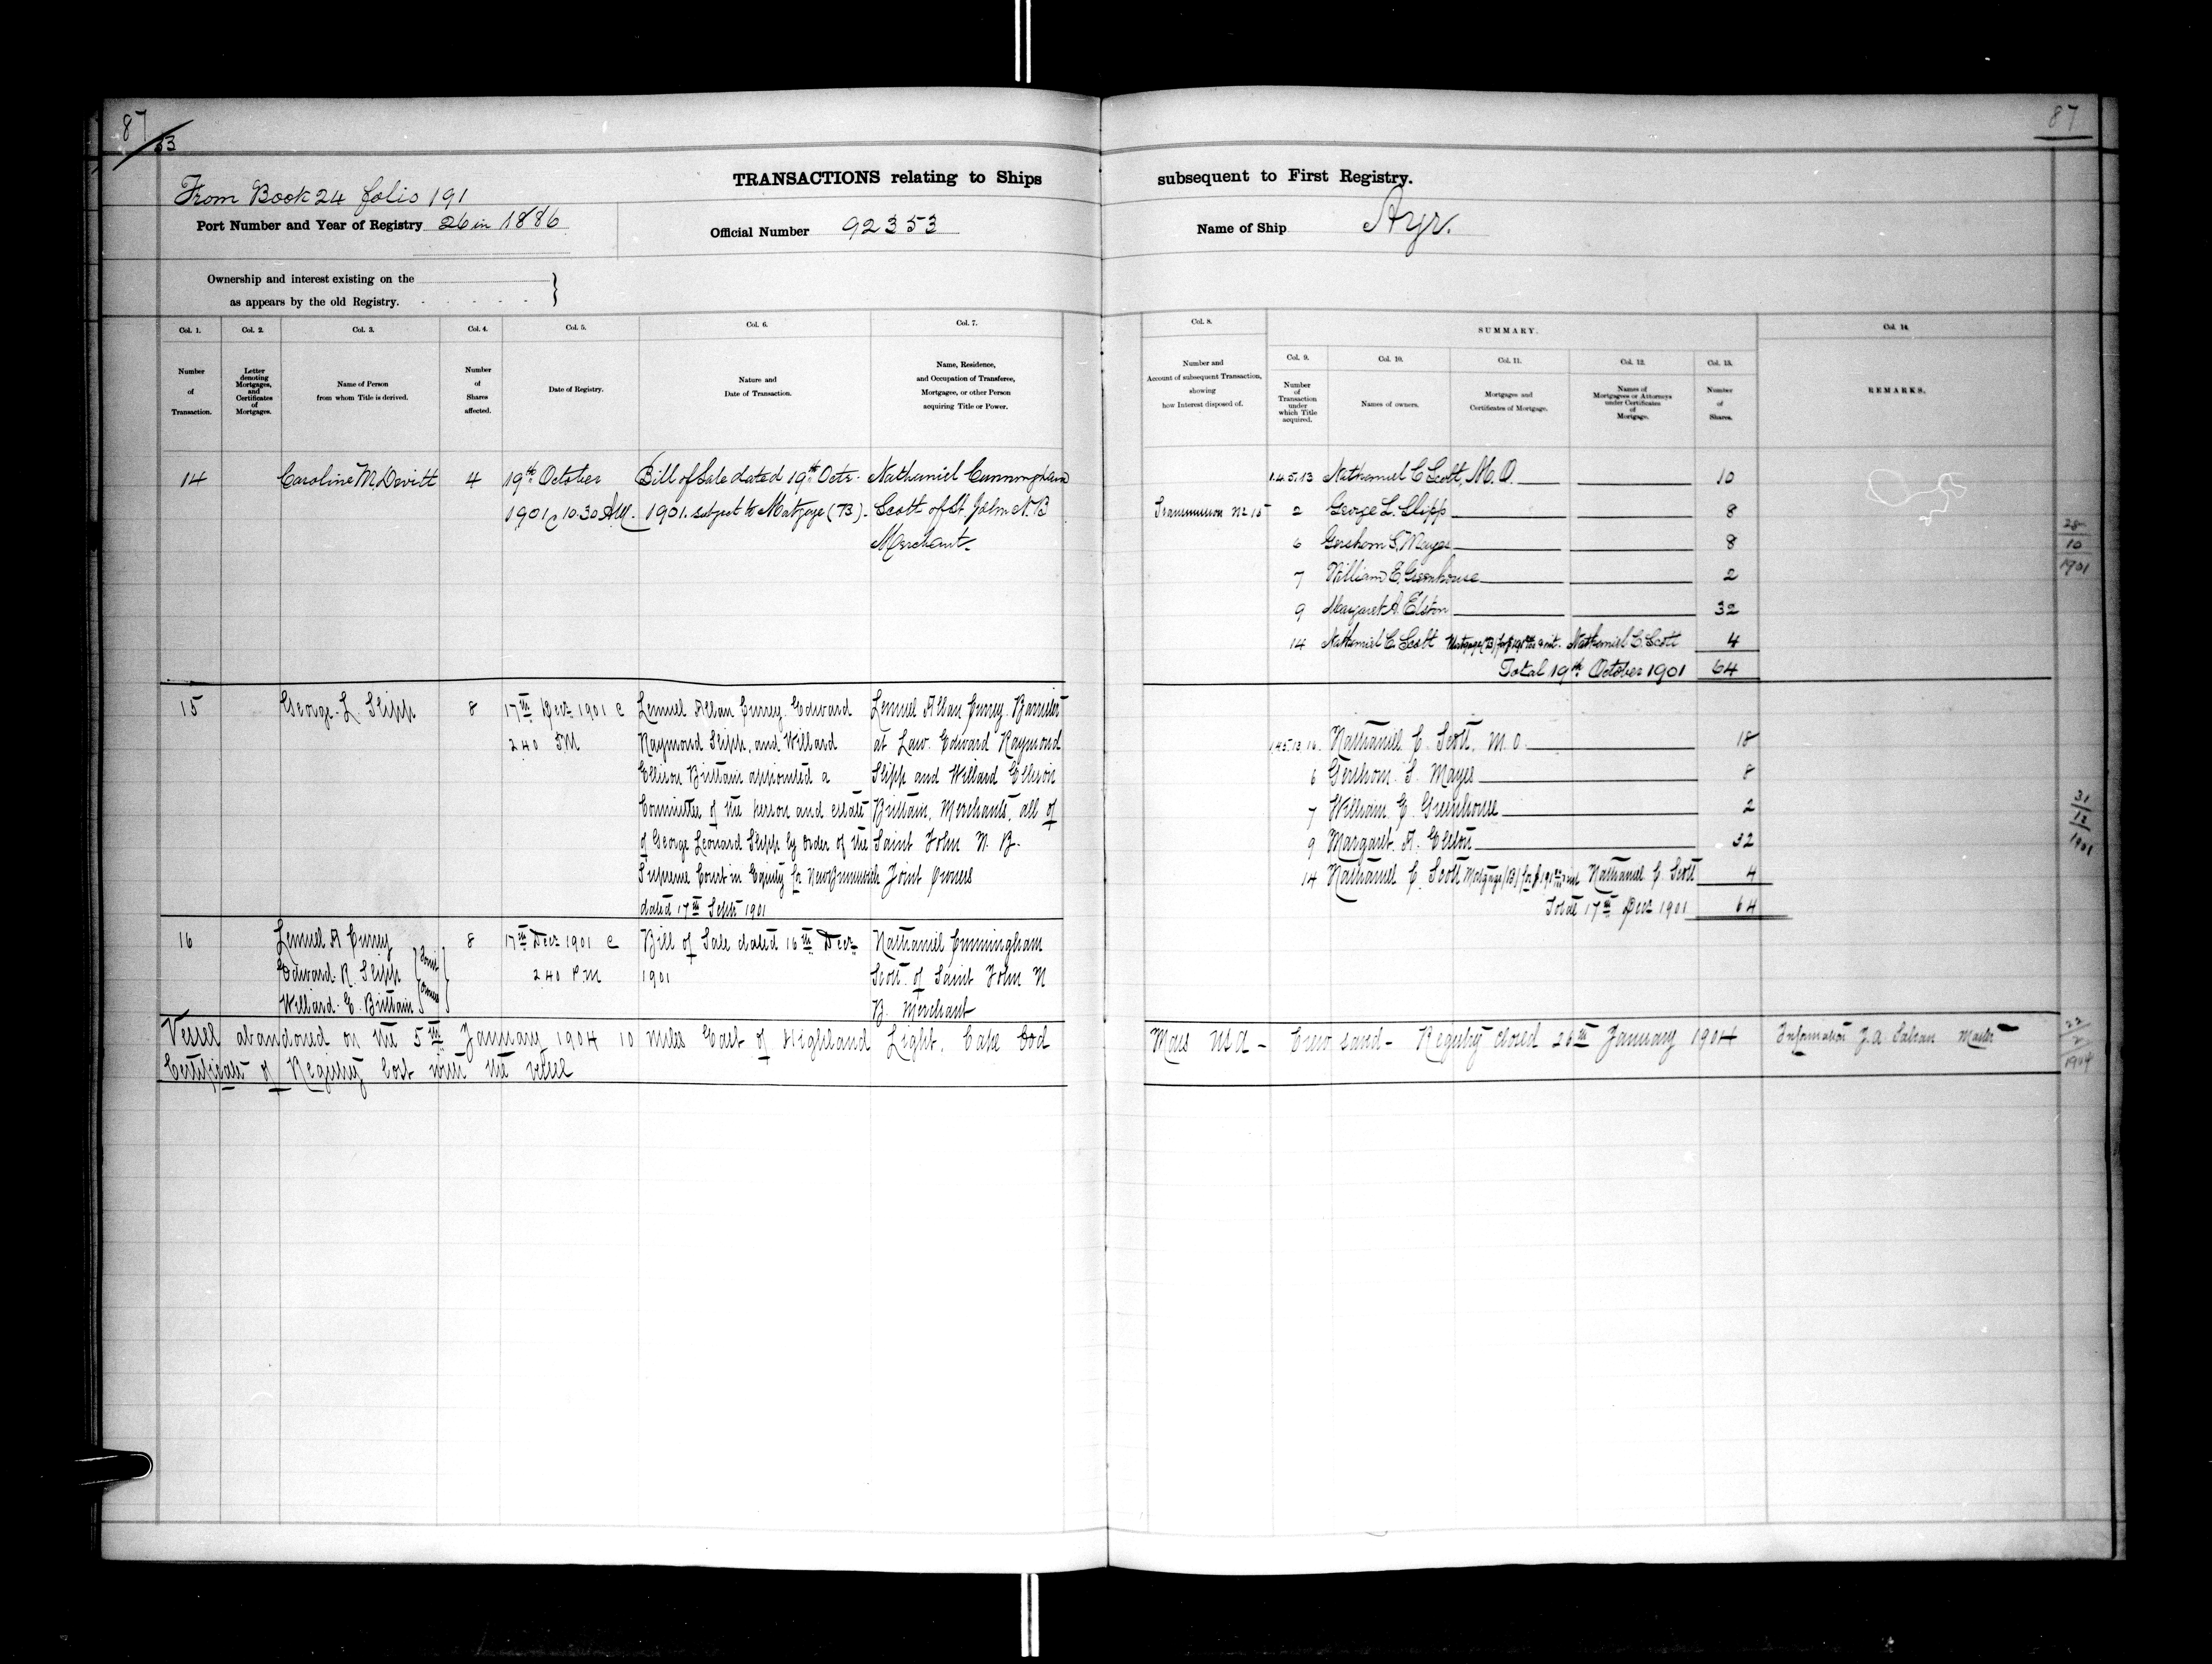 87
53
87
TRANSACTIONS relating to Ships subsequent to First Registry.
From Book 24 folio 191
Port Number and Year of Registry 26 in 1886
Official Number 92353
Name of Ship Ayr.
Ownership and interest existing on the
as appears by the old Registry.
Col. 1. Col. 2. Col. 3. Col. 4. Col. 5. Col. 6. Col. 7.
Number of Transaction.
Letter denoting Mortgages, and Certificates of Mortgages.
Name of Person from whom Title is derived.
Number of Shares affected.
Date of Registry.
Nature and Date of Transaction.
Name, Residence, and Occupation of Transferee, Mortgagee, or other Person acquiring Title or Power.
Col. 8. SUMMARY. Col. 14.
Col. 9. Col. 10. Col. 11. Col. 12. Col. 13.
Number and Account of subsequent Transaction, showing how Interest disposed of.
Number of Transaction under which Title acquired.
Names of owners.
Mortgages and Certificates of Mortgage.
Names of Mortgagees or Attorneys under Certificates of Mortgage.
Number of Shares.
REMARKS.
14 Caroline McDevitt 4 19th October Bill of Sale dated 19th Octr. Nathaniel Cunningham
1901 @ 10.30 AM. 1901. subject to Mortgage (B). Scott of St. John N.B
Merchant.
1.4.5.13 Nathaniel C Scott, M.O. 10
Transmission No 15 2 George L. Slipp 8
6 Gershom S. Mayes 8
7 William E. Greenhouse 2
9 Margaret A. Elston 32
14 Nathaniel C. Scott Mortgage (B) for Nathaniel C. Scott 4
Total 19th October 1901 64
28
10
1901
15 George L. Slipp 8 17th Decr 1901 @ Lemuel Allan Currey. Edward Lemuel Allan Currey. Barrister
2.40 PM Raymond Slipp, and Willard at Law. Edward Raymond
Ellison Brittain appointed a Slipp and Willard Ellison
Committee of the person and estate Brittain, Merchants, all of
of George Leonard Slipp by order of the Saint John N. B.
Supreme Court in Equity for New Brunswick Joint Owners
dated 17th Sept 1901
1.4.5.13 16. Nathaniel C. Scott, M.O. 18
6 Gershom. S. Mayes 8
7 William. E. Greenhouse 2
9 Margaret. A. Elston 32
14 Nathaniel C. Scott Mortgage (B) for Nathaniel C Scott 4
Total 17th Decr 1901 64
31
12
1901
16 Lemuel A Currey 8 17th Decr 1901 @ Bill of Sale dated 16th Decr Nathaniel Cunningham
Edward. R. Slipp Joint 2.40 P.M 1901 Scott of Saint John N
Willard. E. Brittain Owners B. Merchant
Vessel abandoned on the 5th January 1904 10 miles East of Highland Light, Cape Cod Mass USA - Crew saved - Registry closed 26th January 1904 Information Master
Certificate of Registry lost with the vessel
1904